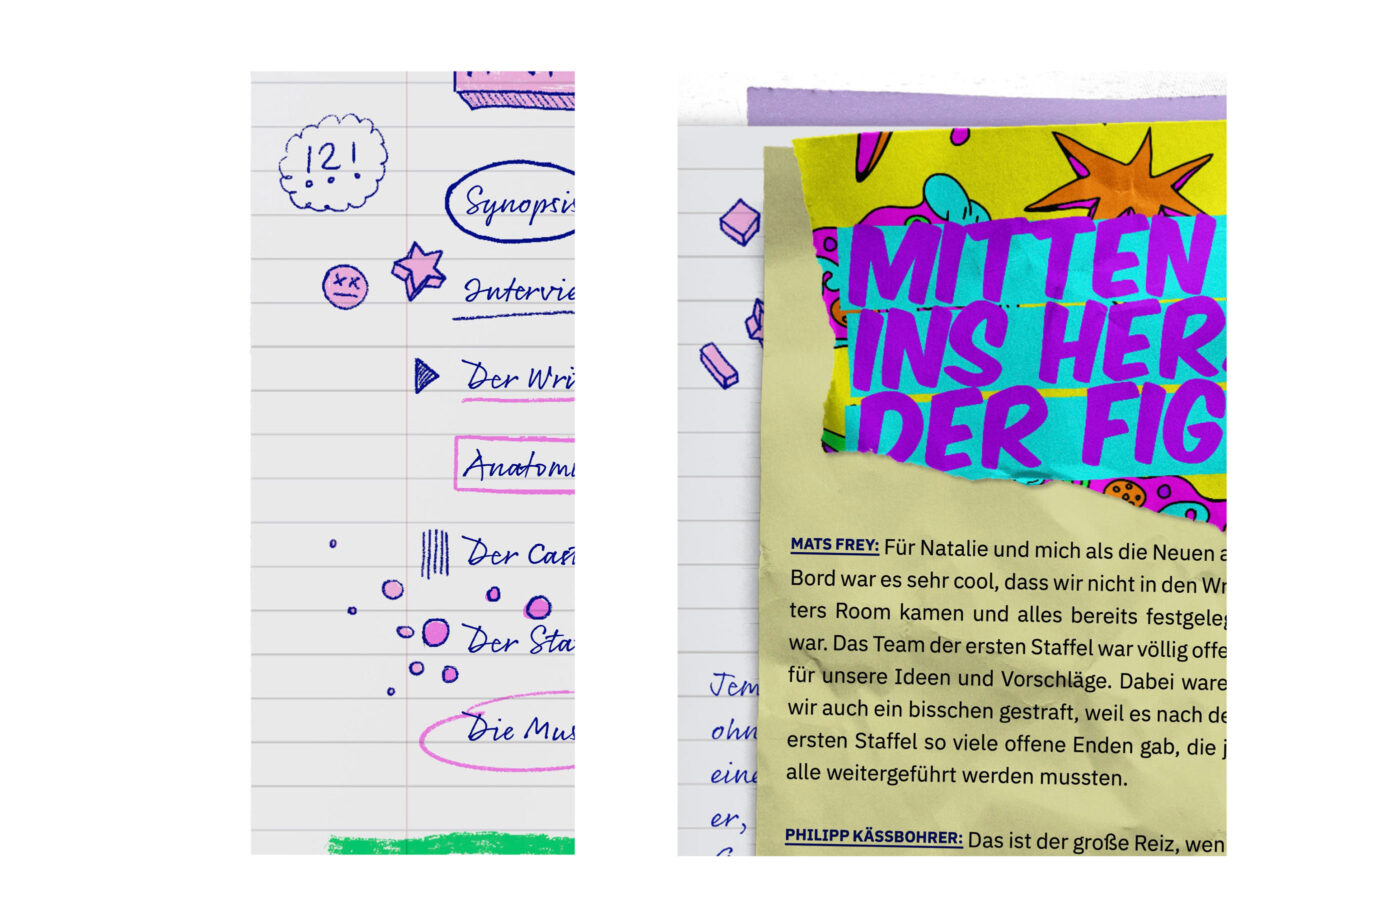 12!
Synopsis
Intervie
Der Wri
Anatomi
Der Cast
Der Sta
Die Mus
MITTEN
INS HER
DER FIG
MATS FREY: Für Natalie und mich als die Neuen a
Bord war es sehr cool, dass wir nicht in den Wr
ters Room kamen und alles bereits festgeleg
war. Das Team der ersten Staffel war völlig offe
für unsere Ideen und Vorschläge. Dabei ware
wir auch ein bisschen gestraft, weil es nach de
ersten Staffel so viele offene Enden gab, die j
alle weitergeführt werden mussten.
PHILIPP KÄSSBOHRER: Das ist der große Reiz, wen
Jem
ohn
eine
er,